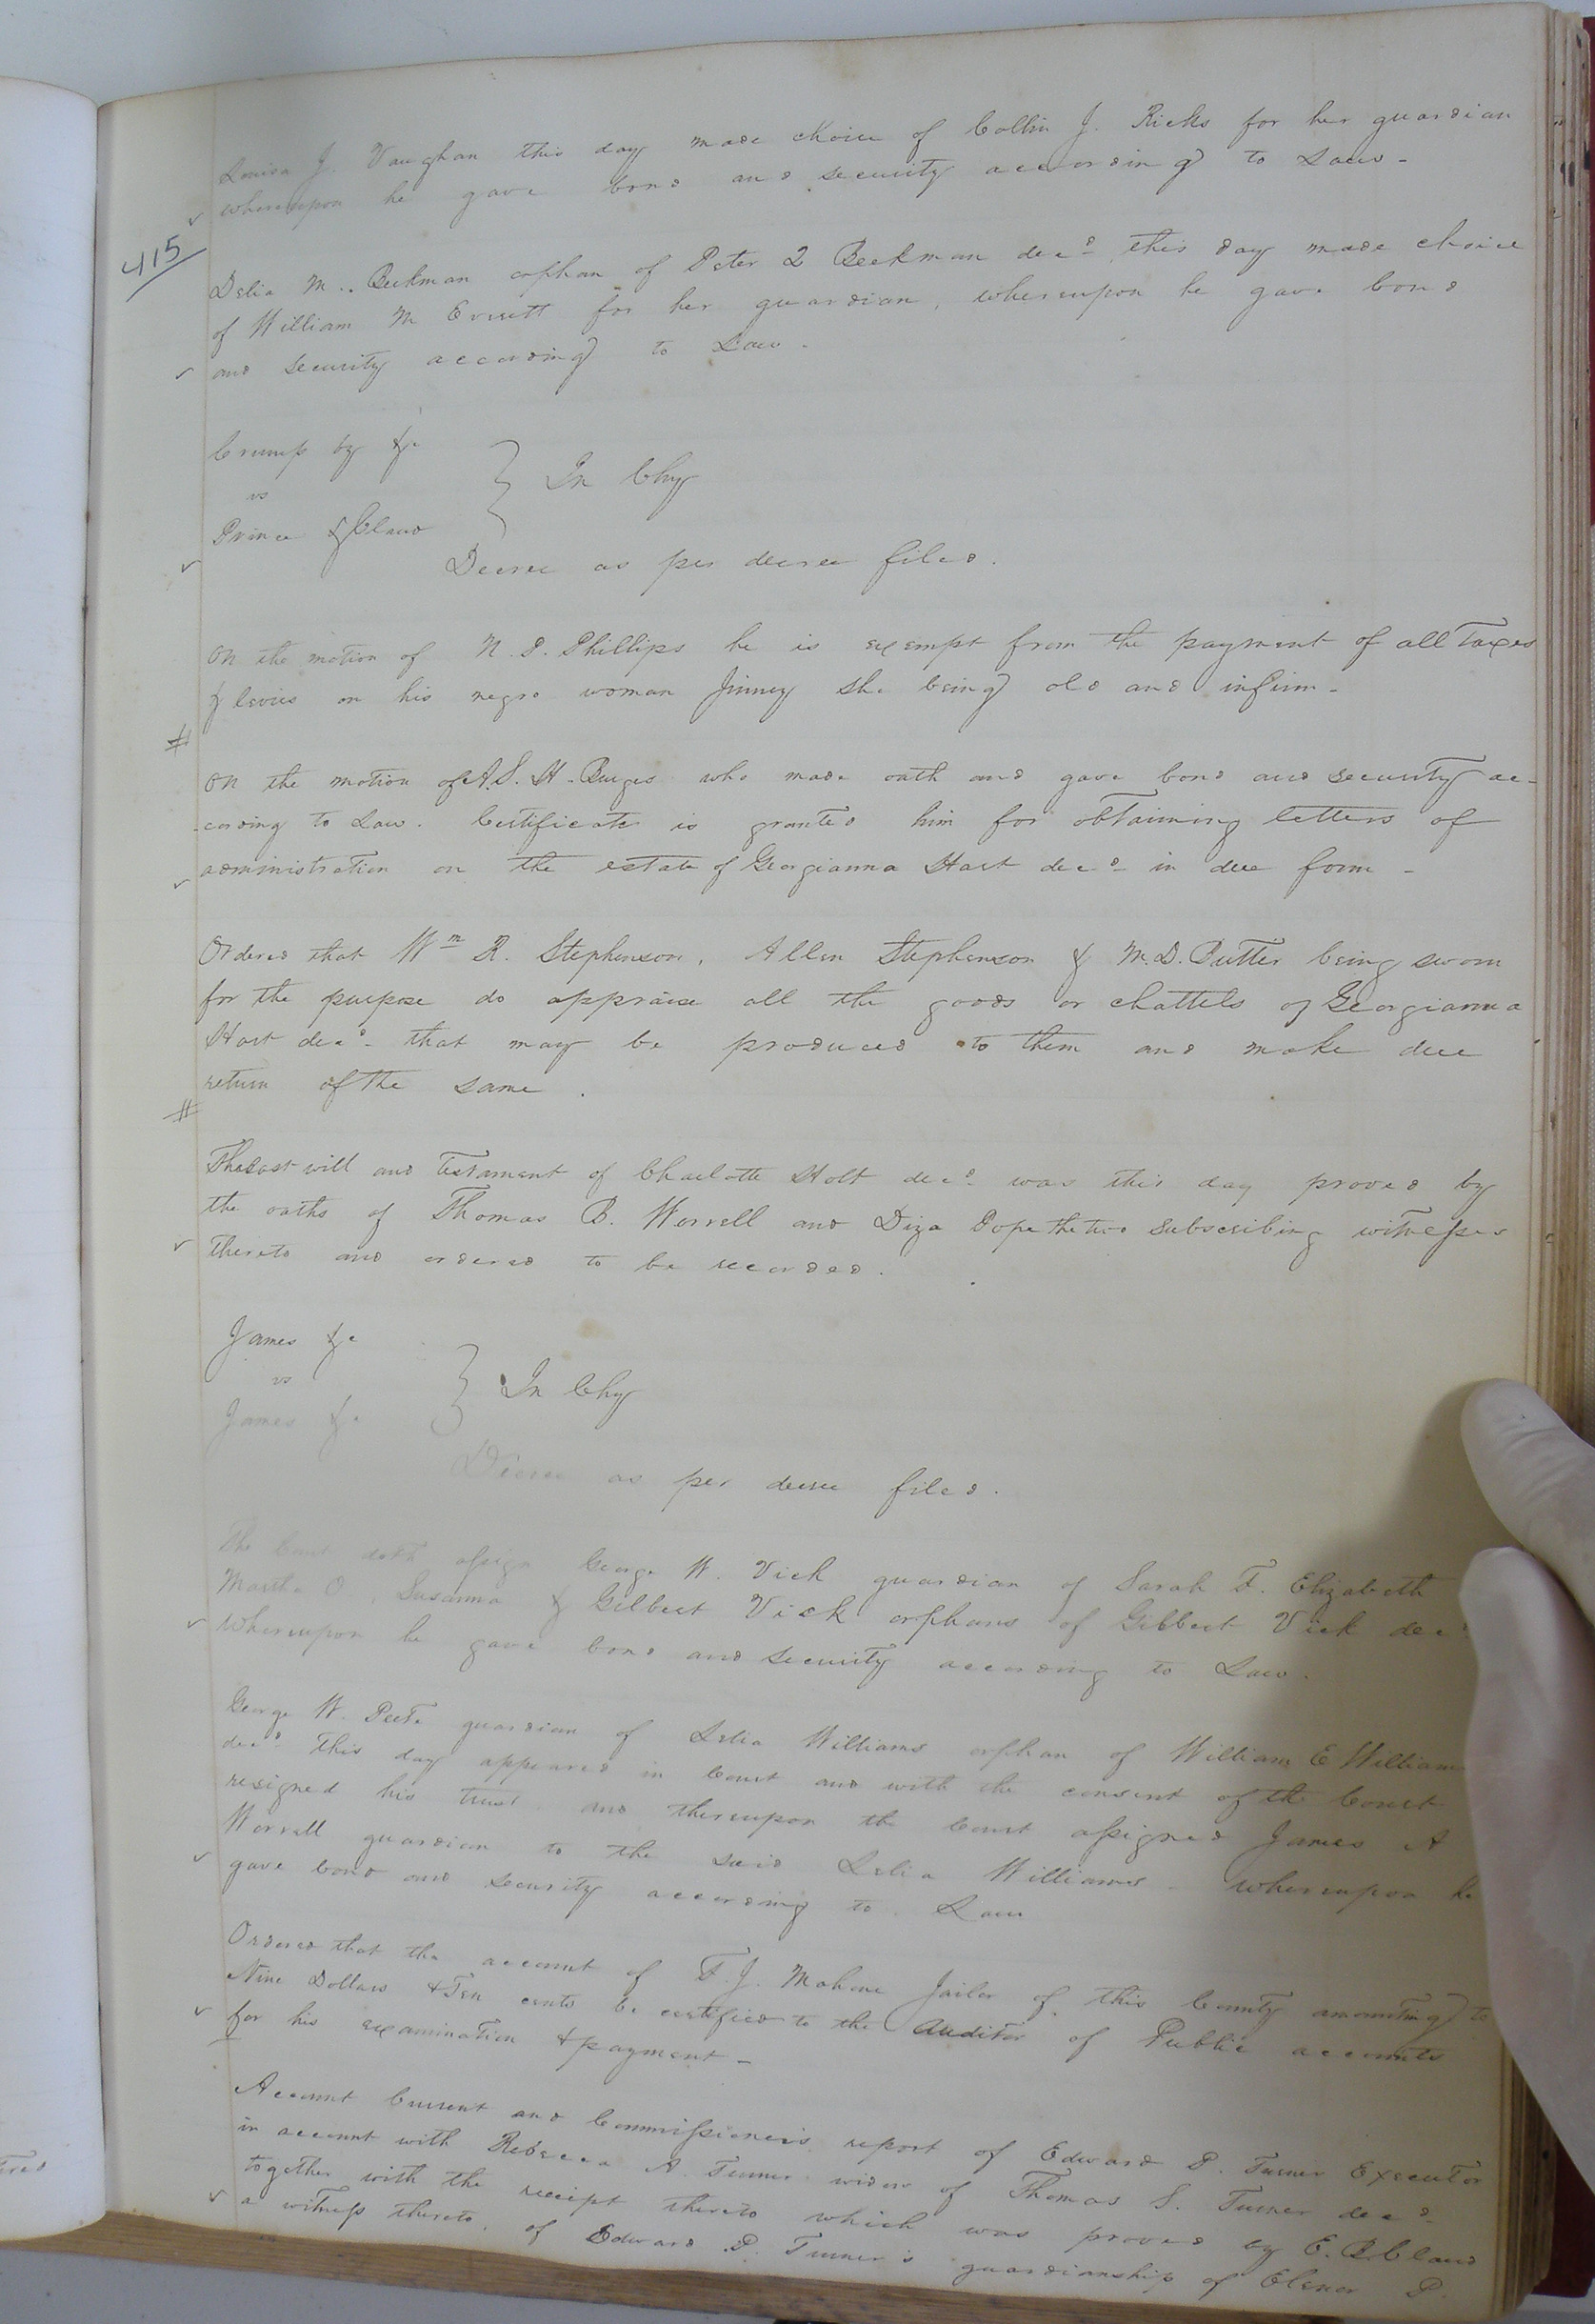 Louisa J. Vaughan this day made choice of Collin J. Ricks for her guardian
whereupon he gave bond and security according to Law -
415
Delia M. Beekman orphan of Peter Q Beekman decd. this day made choice
of William M Everett for her guardian, whereupon he gave bond
and security according to Law.
Crump by &c
vs
Prince & Claud
} In Chy
Decree as per decree filed.
On the motion of N. D. Phillips he is exempt from the payment of all Taxes
& levies on his negro woman Jinney she being old and infirm -
#
On the motion of A. S. H. Burges who made oath and gave bond and security ac-
-cording to Law. Certificate is granted him for obtaining letters of
administration on the estate of Georgianna Hart decd. in due form -
Ordered that Wm R. Stephenson, Allen Stephenson & M. D. Sutter being sworn
for the purpose do appraise all the goods or chattels of Georgianna
Hart decd. that may be produced to them and make due
return of the same.
#
The Last will and testament of Charlotte Holt decd. was this day proved by
the oaths of Thomas B. Worrell and Diza Pope the two subscribing witnesses
thereto and ordered to be recorded.
James &c
vs
James &c
} In Chy
Decree as per decree filed.
The Court doth assign George W. Vick guardian of Sarah F. Elizabeth
Martha O, Susanna & Gilbert Vick orphans of Gilbert Vick decd.
Whereupon he gave bond and security according to Law.
George W. Peete guardian of Delia Williams orphan of William E Williams
decd. this day appeared in Court and with the consent of the Court
resigned his trust and thereupon the Court assigned James A
Worrell guardian to the said Delia Williams - whereupon he
gave bond and security according to Law
Ordered that the account of F. J. Mahone Jailor of this County amounting to
Nine Dollars & Ten cents be certified to the Auditor of Public accounts
for his examination & payment -
Account Current and Commissioners report of Edward P. Turner Executor
in account with Rebecca A. Turner widow of Thomas S. Turner decd.
together with the receipt thereto which was proved by E. B. Claud
a witness thereto, of Edward P. Turner's guardianship of Elenor P.